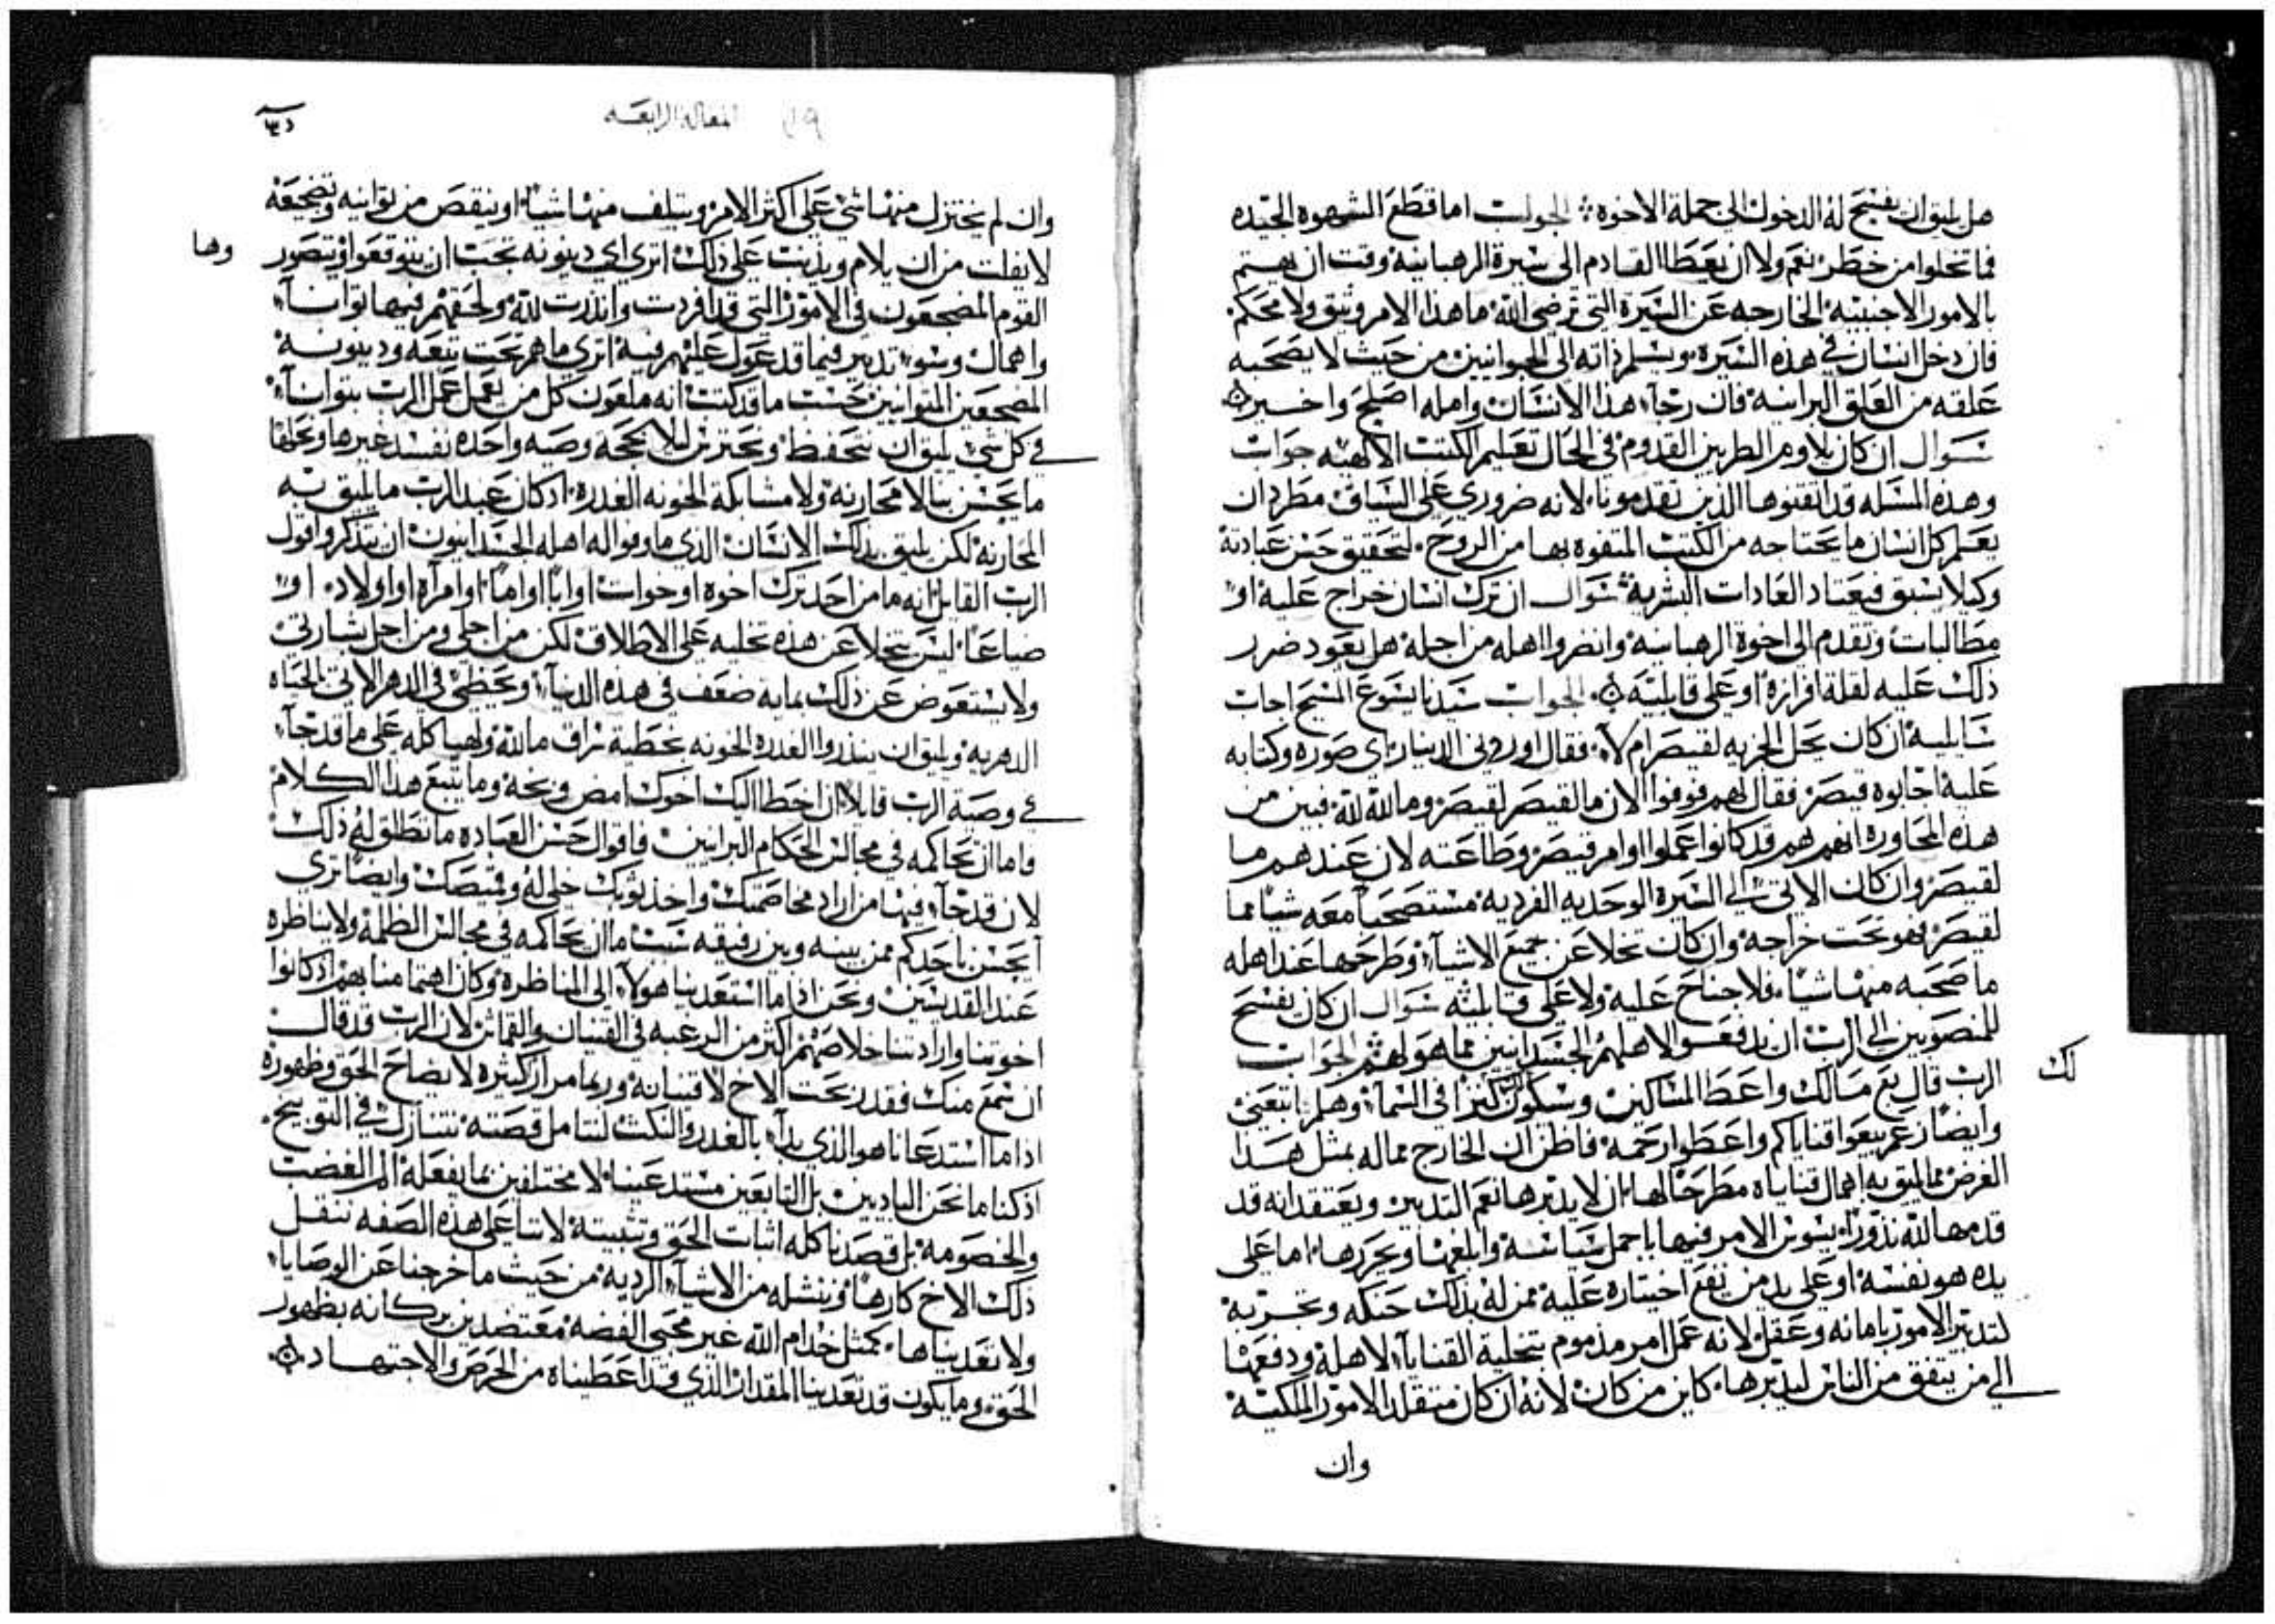 هل يليق ان يفسح له الدخول الى جملة الاخوة الجواب اما قطع الشهوه الجيده
فما تخلوا من خطر نعم ولا ان يعطا القادم الى سيرة الرهبانيه وقت ان يهتم
بالامور الاجنبيه الخارجه عن السيرة التي ترضي الله ما هذا الامر وثيق ولا محكم
فان دخل انسان في هذه السيرة ويسلم ذاته الى الجوانيين من حيث لا يصحبه
علقه من العلق البرانيه فان رجآء هذا الانسان وامله اصلح واخير
سوال ان كان يلاوم الطريين القدوم في الحال تعليم الكتب الالهيه جواب
وهذه المسله قد اتقنوها الذين تقدمونا لانه ضروري على السياق مطرد ان
يعلم كل انسان ما يحتاجه من الكتب المتفوه بها من الروح لتحقيق حسن عبادته
وكيلا يسبق فيعتاد العادات البشرية سوال ان ترك انسان خراج عليه او
مطالبات وتقدم الى اخوة الرهبانيه وانضروا اهله من اجله هل يعود ضرر
ذلك عليه لقلة افرازه او على قابليه الجواب سيدنا يسوع المسيح اجاب
سايليه ان كان يحل الجزيه لقيصر ام لا فقال اوروني الدينار اي صوره وكتابه
عليه اجابوه قيصر فقال لهم فوفوا الان ما لقيصر لقيصر وما لله لله فبين من
هذه المحاورة انهم هم قد كانوا عملوا اوامر قيصر وطاعته لان عندهم ما
لقيصر وان كان الاتي الى السيرة الوحديه الفرديه مستصحباً معه شياً مما
لقيصر فهو تحت خراجه وان كان تخلا عن جميع الاشيآء وطرحها عند اهله
ما صحبه منها شياً فلا جناح عليه ولا على قابليه سوال ان كان يفسح
للمنصويين الى الرب ان يدفعوا لاهلهم الجسدانيين مما هو لهم الجواب
لك
الرب قال بع مالك واعط المساكين وسيكون لك كنزا في السمآء وهلم اتبعني
وايضاً زعم بيعوا قناياكم واعطوا رحمه فاظن ان الخارج مماله بمثل هذا
الغرض مما يليق به اهمال قناياه مطرحاً لها بان لا يدبرها نعم التدبير ويعتقد انه قد
قدمها لله نذوراً يسوس الامر فيها باجمل سياسة وابلغها ويحررها اما على
يده هو نفسه او على يد من يقع اختياره عليه ممن له بذلك حنكه وتجربة
لتدبير الامور بامانه وعقل لانه عمل امر مذموم بتخلية القنايآء لاهله ودفعها
الى من يتفق من الناس ليدبرها كاين من كان لانه ان كان متقلد الامور الملكيه
وان
المقالة الرابعه
١٩
وان لم يختزل منها شي على اكثر الامر ويتلف منها شياً او ينقص من توانيه وتضجيعه
لا يفلت من ان يلام ويذنب على ذلك اترى اي دينونه تجب ان يتوقعوا وتصور
وها
القوم المضجعون في الامور التي قد افردت وانذرت لله ولحقهم فيها توانآء
واهمال وسوء تدبير فيما قد عول عليهم فيه اترى ما هم تحت تبعه ودينونة
المضجعين المتوانيين حسب ما قد كتب انه ملعون كل من يعمل عمل الرب بتوانآء
في كل شي يليق ان نتحفظ ونحترس ليلا بحجة وصيه واحده نفسد غيرها ونحلها
ما يحسن بنا لا محاربة ولا مشابكة الخونه الغدرة اذ كان عبد الرب ما يليق به
المحاربة لكن يليق بذلك الانسان الذي ما وفوا له اهله الجسدانيون ان يتذكروا قول
الرب القايل انه ما من احد ترك اخوة او خوات او اباً او اماً او امرآه او اولاد او
ضياعاً ليس تخلا عن هذه تخليه على الاطلاق لكن من اجلي ومن اجل بشارتي
ولا يستعوض عن ذلك بمايه ضعف في هذه الدنيآء ويحظى في الدهر الاتي الحياه
الدهريه ويليق ان ينذروا الغدره الخونه بخطية سراق ما لله ولهياكله على ما قد جآء
في وصية الرب قايلا ان اخطا اليك اخوك امض وبخه وما يتبع هذا الكلام
فاما ان تحاكمه في مجالس الحكام البرانيين فاقوال حسن العباده ما تطلق له ذلك
لان قد جآء فيها من اراد مخاصمتك واخذ ثوبك خلي له وقميصك وايضاً ترى
أيحسن باحدكم ممن بينه وبين رفيقه سبب ما ان يحاكمه في مجالس الظلمة ولا يناظره
عند القديسين ونحن اذا ما استعدينا هولآء الى المناظرة وكان اهتمامنا بهم اذ كانوا
اخوتنا وارادتنا خلاصهم اكثر من الرغبه في القنيان والقماش لان الرب قد قال
ان سمع منك فقد ربحت الاخ لا قنيانه وربما مرار كثيره لايضاح الحق وظهوره
اذا ما استدعانا هو الذي بدآء بالغدر والنكث لنتامل قصته نتنازل في التوبيخ
اذ كنا ما نحن الباديين بل التابعين مستدعينا لا مختلفين بما يفعله الم الغضب
والخصومه بل قصدنا كله اثبات الحق وتثبيته لاننا على هذه الصفه ننقل
ذلك الاخ كارهاً وننشله من الاشيآء الرديه من حيث ما خرجنا عن الوصايا
ولا تعديناها كمثل خدام الله غير محبي الفضه معتضدين بركانه بظهور
الحق وما يكون قد تعدينا المقدار الذي قد اعطيناه من الحرص والاجتهاد